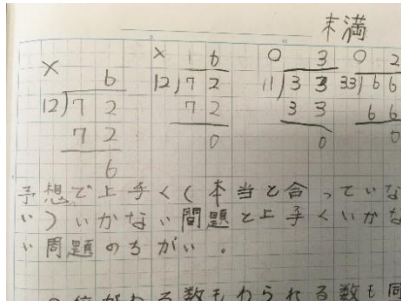 未満
× 6
12)72
72
6
× 16
12)72
72
0
0 3
11)33
33
0
0 2
33)66
66
0
予想で上手く(本当と合っていな
い)いかない問題と上手くいかな
い問題のちがい。
の位がわる数もわられる数も同